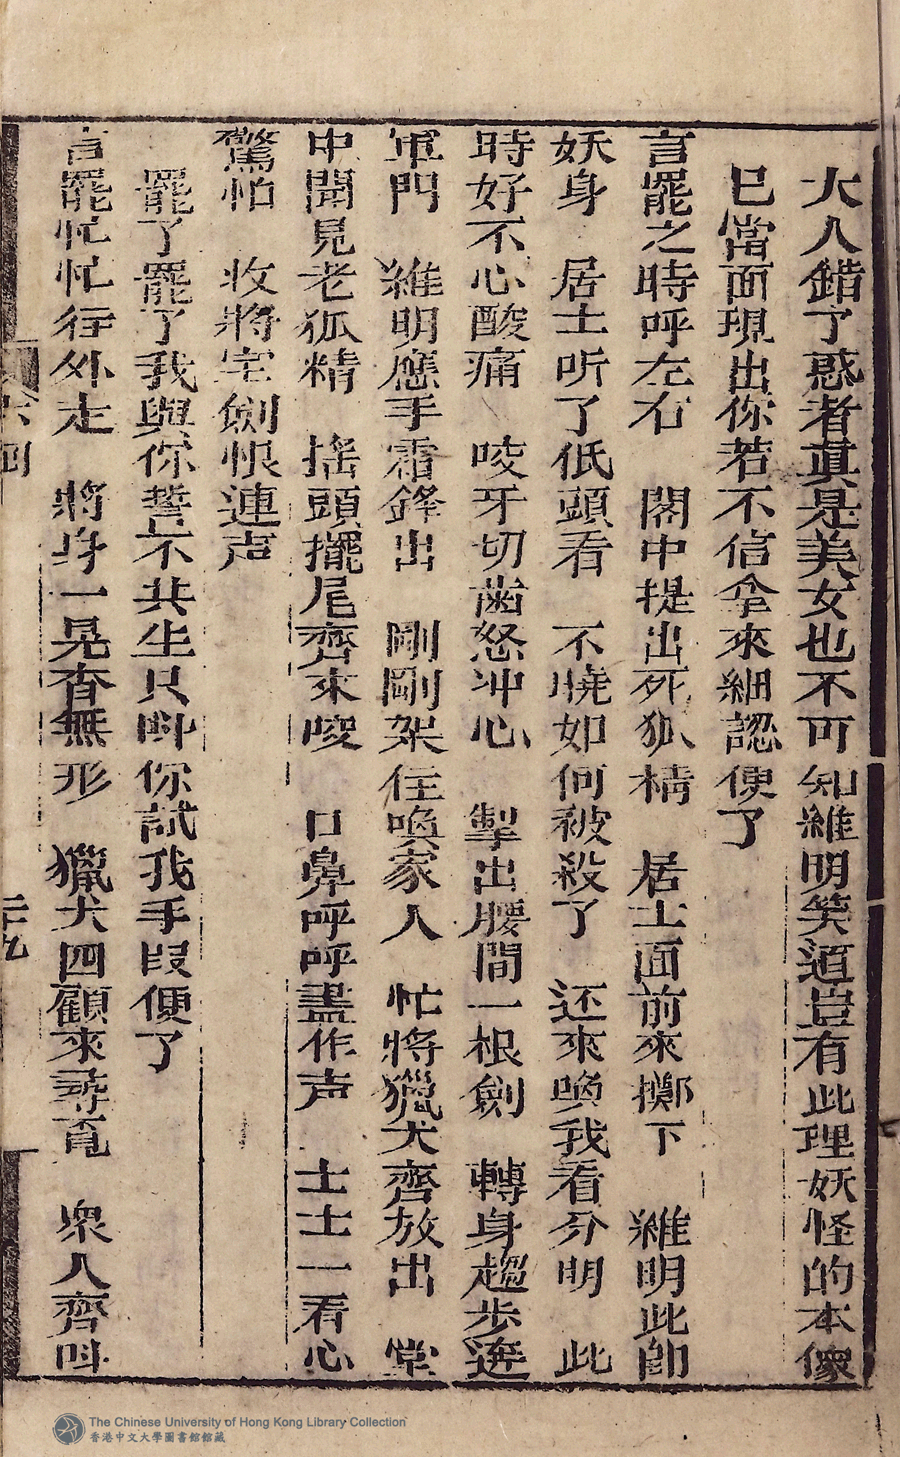 大人錯了惑者眞是美女也不可知維明笑道豈有此理妖怪的本像
已當面現出你若不信拿來細認便了
言罷之時呼左右　閣中提出死狐精　居士面前來擲下　維明此即
妖身　居士听了低頭看　不曉如何被殺了　还來喚我看分明　此
時好不心酸痛　咬牙切齒怒冲心　掣出腰間一根劍　轉身趨步迸
軍門　維明應手霜鋒出　剛剛架住喚家人　忙將獵犬齊放出　堂
中聞見老狐精　搖頭擺尾齊來唆　口鼻呼呼盡作声　士士一看心
驚怕　收將宝劍恨連声
罷了罷了我與你誓不共生只呌你試我手叚便了
言罷忙忙徃外走　將身一晃杳無形　獵犬四顧來尋覔　衆人齊呌
二十九
The Chinese University of Hong Kong Library Collection
香港中文大學圖書館館藏